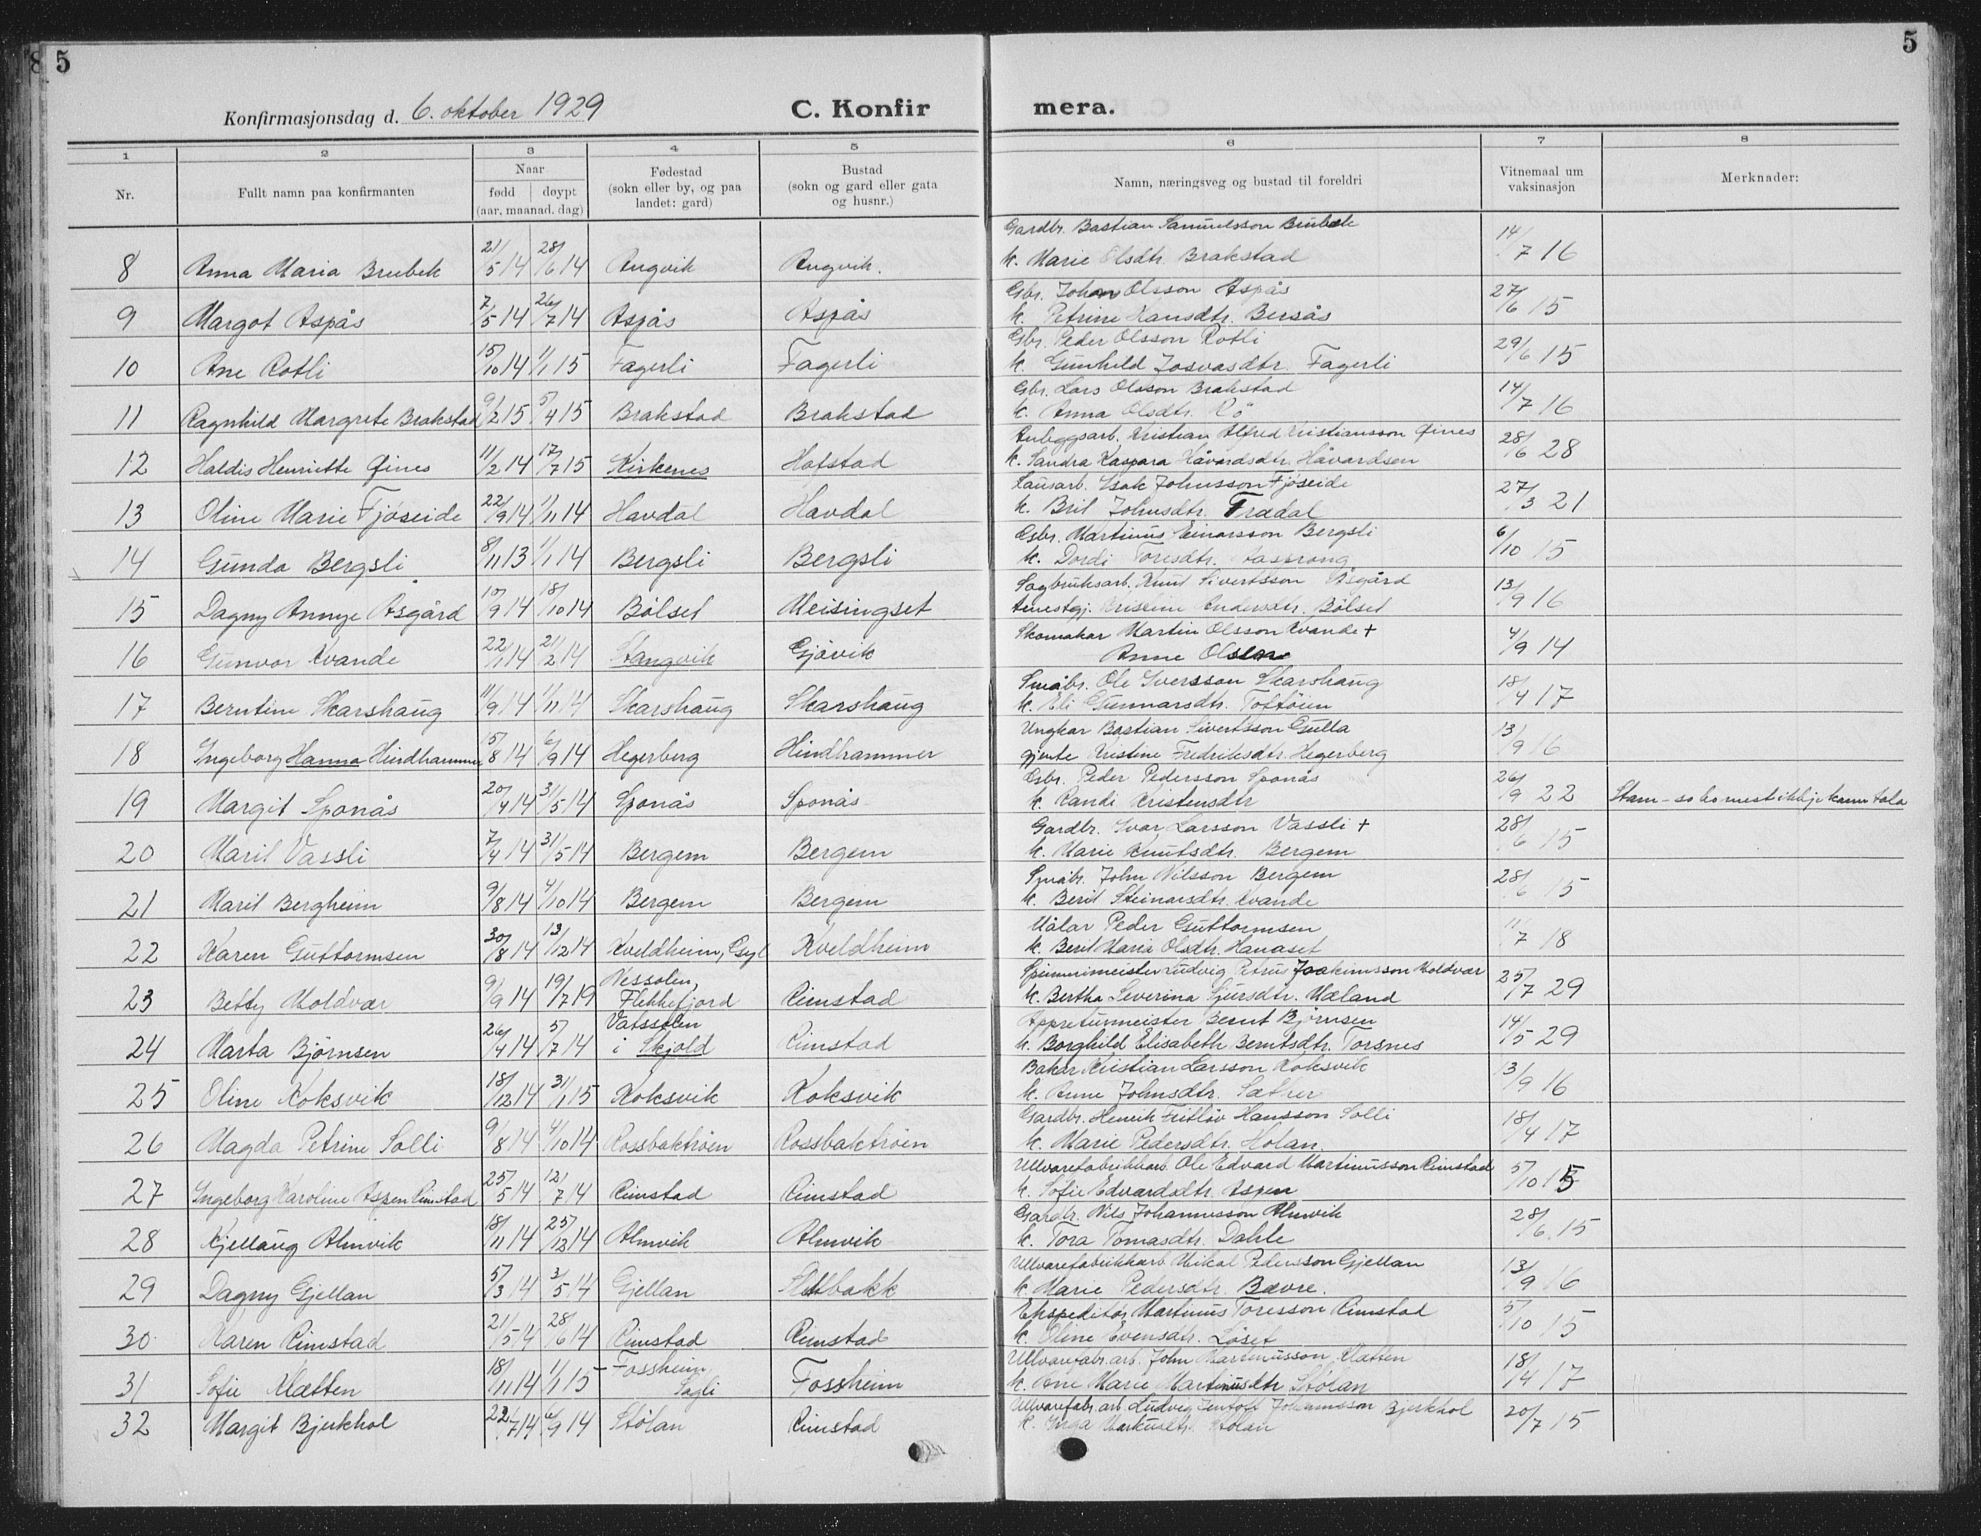 5
5
Konfirmasjonsdag d. 6. oktober 1929 C. Konfirmera.
1 2 3 4 5 6 7 8
Nr. Fullt namn paa konfirmanten Naar fødd døypt (aar, maanad, dag) Fødestad (sokn eller by, og paa landet: gard) Bustad (sokn og gard eller gata og husnr.) Namn, næringsveg og bustad til foreldri Vitnemaal um vaksinasjon Merknader:
Gardbr. Bastian Samuelsson Brubek
8 Anna Maria Brubek 21/5 14 28/6 14 Angvik Angvik. k. Marie Olsdtr. Brakstad 14/7 16
Gbr. Johan Olsson Aspås
9 Margot Aspås 7/5 14 26/7 14 Aspås Aspås k. Petrine Hansdtr. Bersås 27/6 15
Gbr. Peder Olsson Rotli
10 Ane Rotli 15/10 14 1/1 15 Fagerli Fagerli k. Gunhild Josvasdtr. Fagerli 29/6 15
Gbr. Lars Olsson Brakstad
11 Ragnhild Margrete Brakstad 9/2 15 5/4 15 Brakstad Brakstad k. Anna Olsdtr. Rö 14/7 16
Anleggsarb. Kristian Alfred Kristiansson Øines
12 Haldis Henriette Øines 11/2 14 17/7 15 Kirkenes Hofstad k. Sandra Kaspara Håvardsdtr. Håvardsen 28/6 28
Lausarb. Isak Johnsson Fjøseide
13 Oline Marie Fjøseide 22/9 14 1/11 14 Havdal Havdal k. Brit Johnsdtr. Trædal 27/3 21
Gbr. Martinus Einarsson Bergsli
14 Gunda Bergsli 8/11 13 1/1 14 Bergsli Bergsli k. Dordi Toresdtr. 6/10 15
Sagbruksarb. Knut Sivertsson Åsgård
15 Dagny Annye Åsgård 10/9 14 18/10 14 Bölset Meisingset tenestgj. Kristine Andersdtr. Bölset 13/9 16
Skomakar Martin Olsson Kvande +
16 Gunvor Kvande 22/1 14 21/2 14 Stangvik Gjövik Anne Olsen 4/9 14
Småbr. Ole Iversson Skarshaug
17 Berntine Skarshaug 11/9 14 1/11 14 Skarshaug Skarshaug k. Eli Gunnarsdtr. Toftöien 18/4 17
Ungkar Bastian Sivertsson Gulla
18 Ingeborg Hanna Hindhammer 15/8 14 6/9 14 Hegerberg Hindhammer gjente Kristine Fredriksdtr. Hegerberg 13/9 16
Gbr. Peder Pedersson Sponås
19 Margit Sponås 20/4 14 31/5 14 Sponås Sponås k. Randi Kristensdtr 26/9 22 Stam – so ho mest ikkje kann tala
Gardbr. Ivar Larsson Vassli +
20 Marit Vassli 7/4 14 31/5 14 Bergem Bergem k. Marie Knutsdtr. Bergem 28/6 15
Småbr. John Nilsson Bergem
21 Marit Bergheim 9/8 14 4/10 14 Bergem Bergem k. Berit Steinarsdtr. Kvande 28/6 15
Målar Peder Guttormsen
22 Karen Guttormsen 30/8 14 13/12 14 Kveldheim, Gyl Kveldheim k. Berit Marie Olsdtr. Hanaset 11/7 18
Spinnimeister Ludvig Petrus Joakimsson Moldvær
23 Betty Moldvær 9/9 14 19/7 19 Nessolen, Flekkefjord Rimstad k. Bertha Severina Sjursdtr. Mæland 25/7 29
Appreturmeister Bernt Bjørnsen
24 Marta Bjørnsen 26/4 14 5/7 14 Vatssolen i Skjold Rimstad k. Borghild Elisabeth Berntsdtr. Torsnes 14/5 29
Bakar Kristian Larsson Koksvik
25 Oline Koksvik 18/12 14 31/1 15 Koksvik Koksvik k. Anne Johnsdtr. Sæther 13/9 16
Gardbr. Henrik Fritlöv Hansson Solli
26 Magda Petrine Solli 9/8 14 4/10 14 Rossbaktröen Rossbaktröen k. Marie Pedersdtr. Holan 18/4 17
Ullvarefabrikkarb. Ole Edvard Martinusson Rimstad
27 Ingeborg Karoline Aspen Rimstad 25/5 14 12/7 14 Rimstad Rimstad k. Sofie Edvardsdtr. Aspen 5/10 15
Gardbr. Nils Johannesson Almvik
28 Kjellaug Almvik 18/11 14 25/12 14 Almvik Almvik k. Tora Tomasdtr. Dahle 28/6 15
Ullvarefabrikkarb. Mikal Pedersson Gjellan
29 Dagny Gjellan 5/3 14 3/5 14 Gjellan k. Marie Pedersdtr. Bævre. 13/9 16
Ekspeditör Martinus Toresson Rimstad
30 Karen Rimstad 21/5 14 28/6 14 Rimstad Rimstad k. Oline Evensdtr. Löset 5/10 15
Ullvarefabr.arb. John Martinusson Kletten
31 Sofie Kletten 18/11 14 1/1 15 Fossheim Sogli Fossheim k. Ane Marie Martinusdtr Stölan 18/4 17
Ullvarefabr.arb. Ludvig Johannesson Bjerkhol
32 Margit Bjerkhol 22/7 14 6/9 14 Stölan Rimstad k. Inga Markusdtr. Stölan 20/7 15